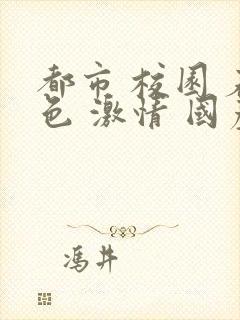 都市 校园 
色 激情 国
冯井